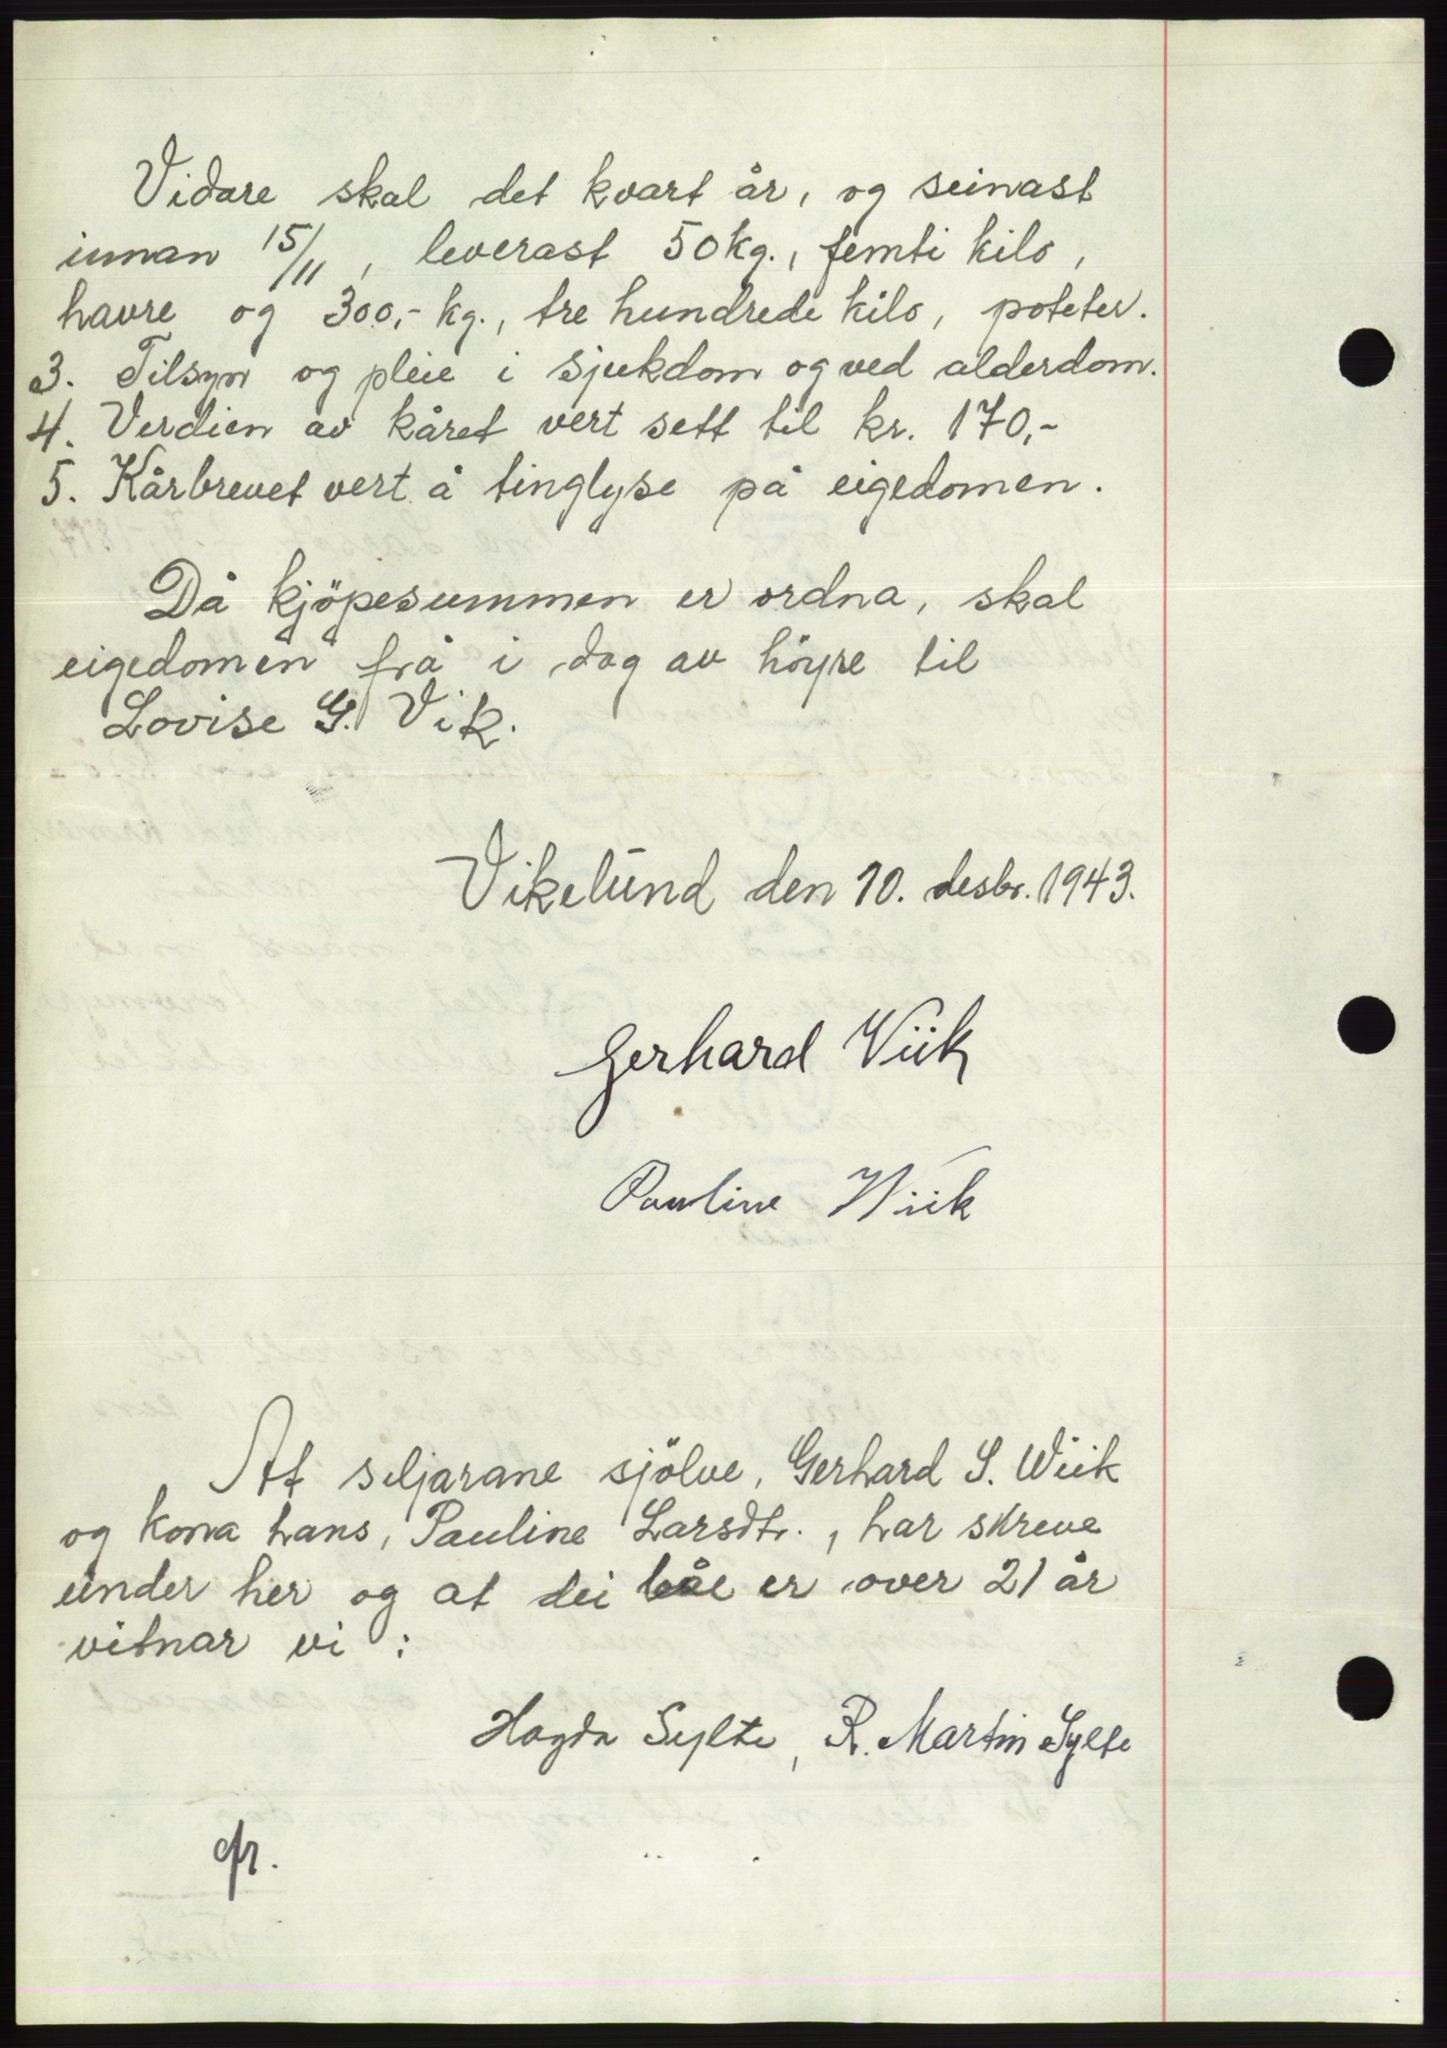 Vidare skal det kvart år, og seinast
innan 15/11, leverast 50 kg., femti kilo,
havre og 300,- kg., tre hundrede kilo, poteter.
3. Tilsyn og pleie i sjukdom og ved alderdom.
4. Verdien av kåret vert sett til kr. 170,-
5. Kårbrevet vert å tinglyse på eigedomen.
Då kjöpesummen er ordna, skal
eigedomen frå i dag av höyre til
Lovise G. Vik.
Vikelund den 10. desbr. 1943.
Gerhard Viik
Pauline Wiik
At seljarane sjölve, Gerhard S. Wiik
og kona hans, Pauline Larsdtr., har skreve
under her og at dei båe er over 21 år
vitnar vi :
Hagda Sylte, R. Martin Sylte